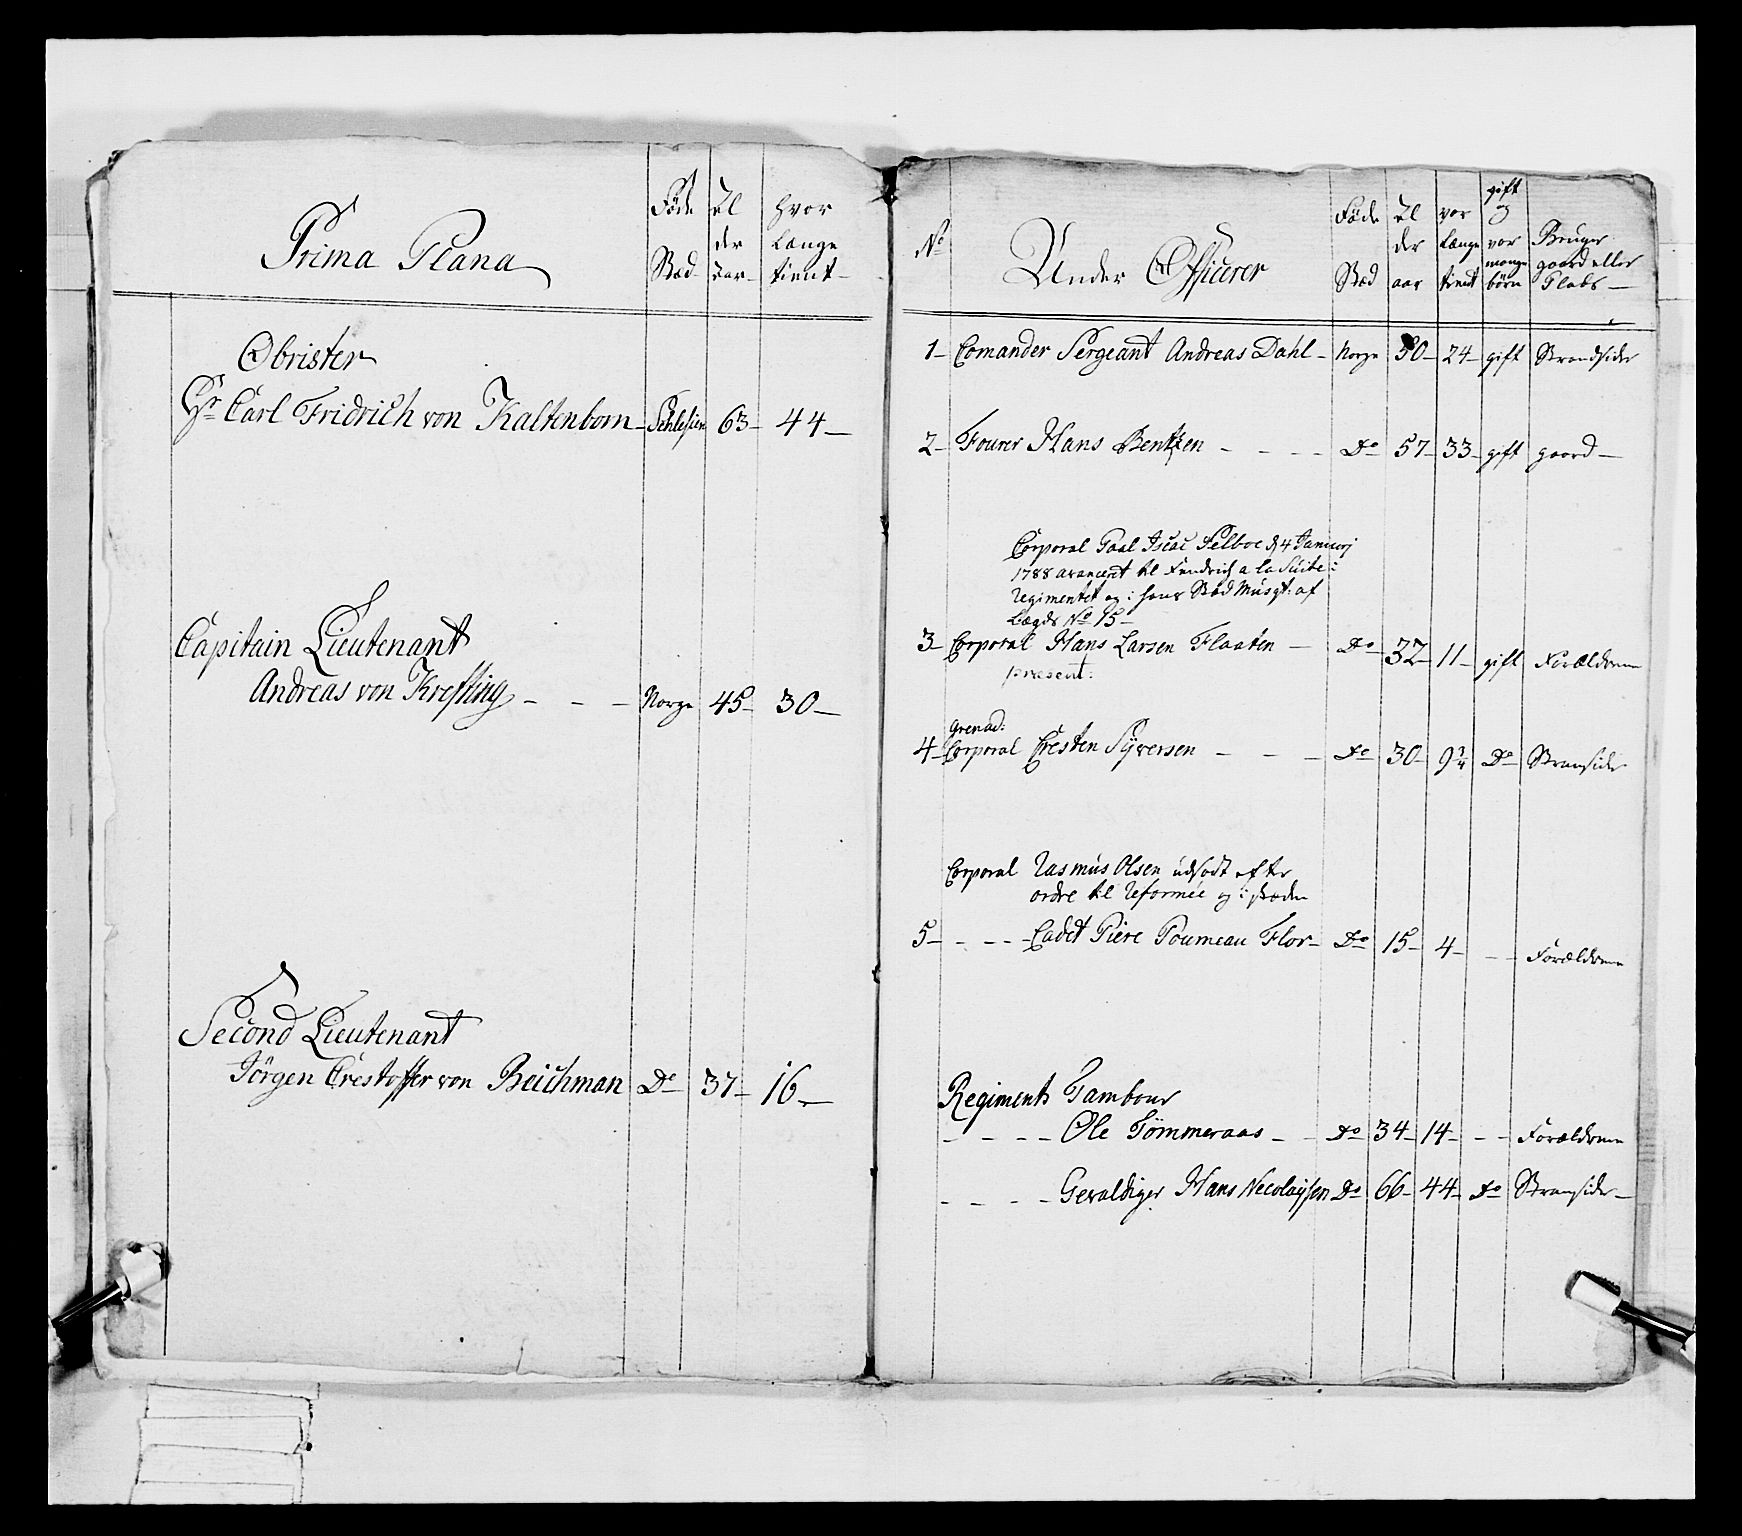 Prima Plana
Føde Stæd
Al der Aar
hvor længe tient
Obrister
Hr Carl Fridrich von Kaltenborn - Schlesien 63 - 44 -
Capitain Lieutenant
Andreas von Krefting - - - Norge 45 - 30 -
Second Lieutenant
Jörgen Crestoffer von Beichman Do 37 - 16 -
No
Under Officerer
Føde Stæd
Al der aar
vor længe tient
gift og vor mange børn
Bruger gaard eller Plads -
1 - Comander Sergeant Andreas Dahl - Norge 50 - 24 - gift Strandsider
2 - Fourer Hans Bentzen - - - - Do 57 - 33 - gift gaard -
Corporal Paal Isac Selboe d 4 Januarj
1788 avanceret til Fendrich a la Suite i
Regimentet og i hans Stæd Musqt: af
Lægds No 15 -
3 - Corporal Hans Larsen Flaaten - Do 32 - 11 - gift Forældrene
present:
Grenad:
4 - Corporal Cresten Syversen - - - Do 30 - 9 1/4 Do Stransider
Corporal Rasmus Olsen udsadt efter
ordre til Reformée og i stæden
5 - - - - Cadet Piere Poumeau Flor - Do 15 - 4 - - - Forældrene
Regiments Tambour
- - - - Ole Tömmeraas - - Do 34 - 14 - - - Forældrene
- - - - Gevaldiger Hans Necolaysen Do 66 - 44 - Do Stransider -